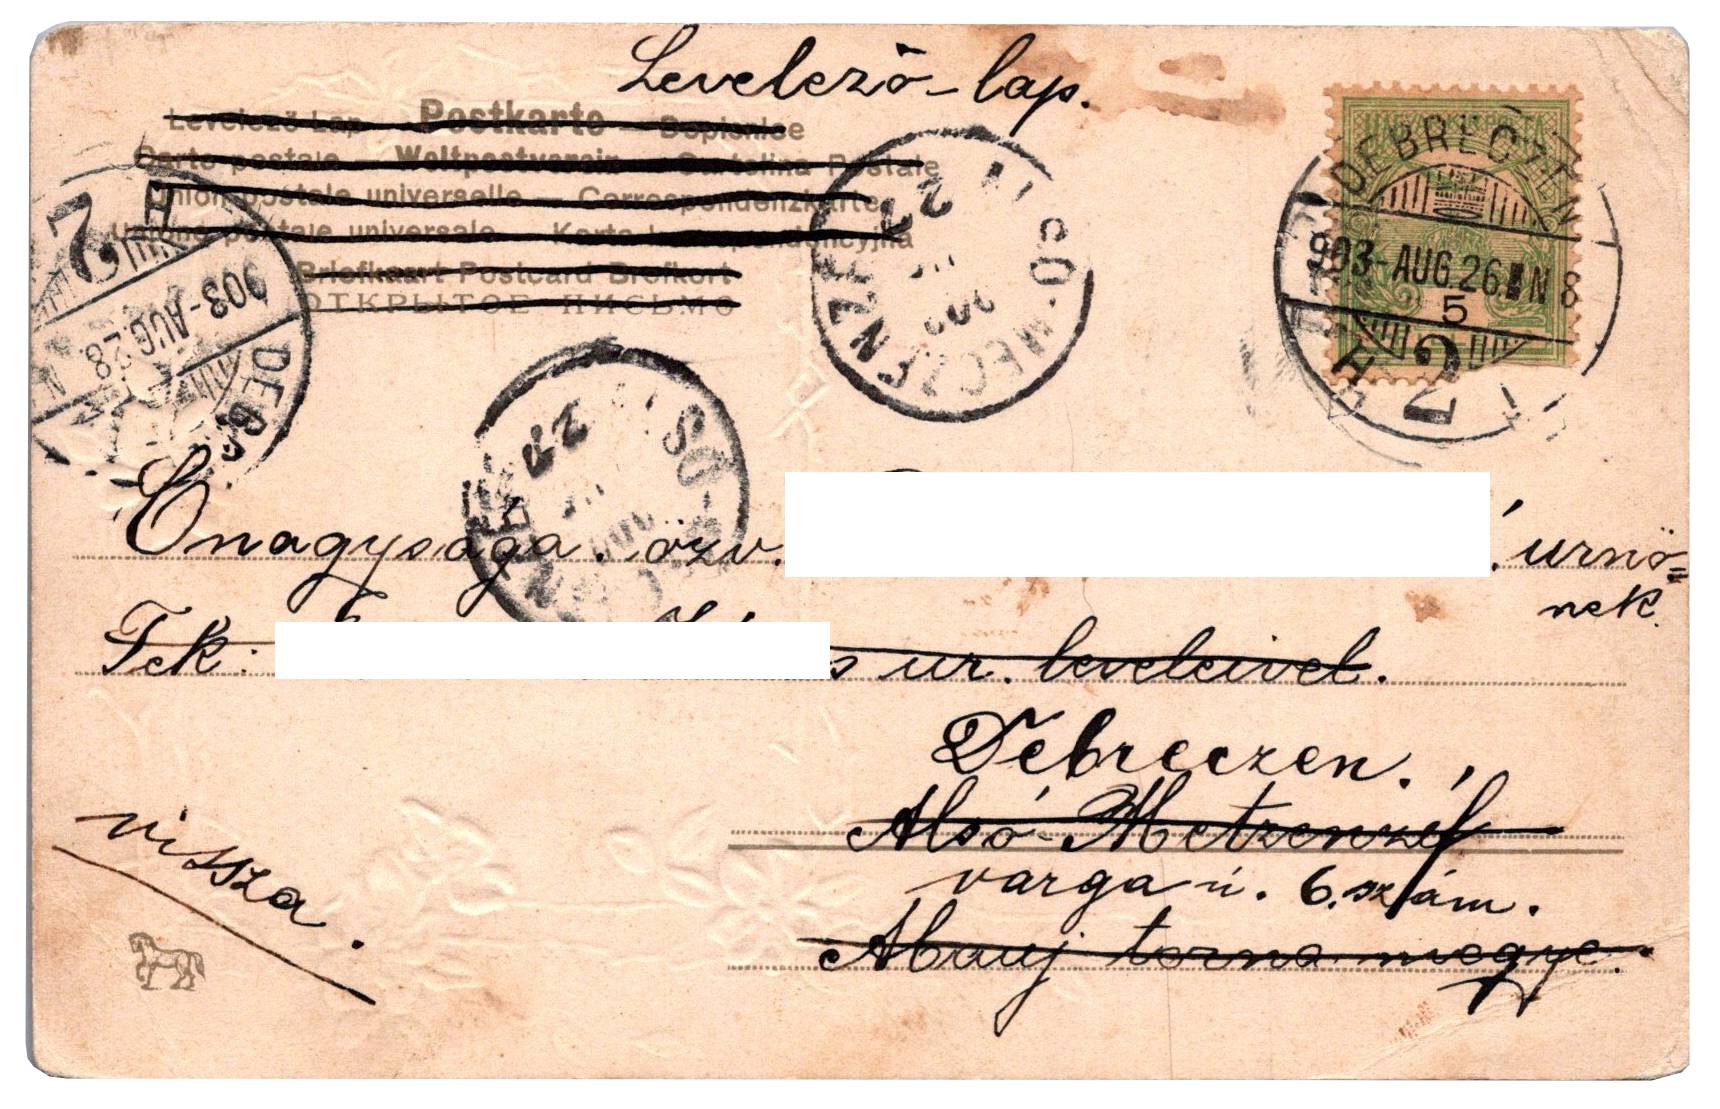 Levelező-lap.
Levelező-Lap — Postkarte — Dopisnice
Carte postale — Weltpostverein — Cartolina Postale
Union postale universelle — Correspondenzkarte
Unione postale universale — Karta korespondencyjna
Briefkaart Postcard Brefkort
ОТКРЫТОЕ ПИСЬМО
MAGYAR KIR. POSTA
DEBRECZEN
903-AUG.26. N 8
5
2
ALSÓ-MECZENZÉF
27
2
903-AUG.28. N
DEBR
27
Őnagysága. özv. urnő=
nek.
Tek: s ur. leveleivel.
Debreczen.
Alsó-Metzenzéf
varga ú. 6. szám.
Abauj torna megye.
vissza.